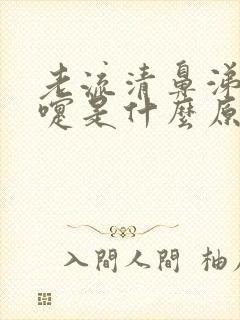 老流清鼻涕
嚏是什麼原
入間人間 柚